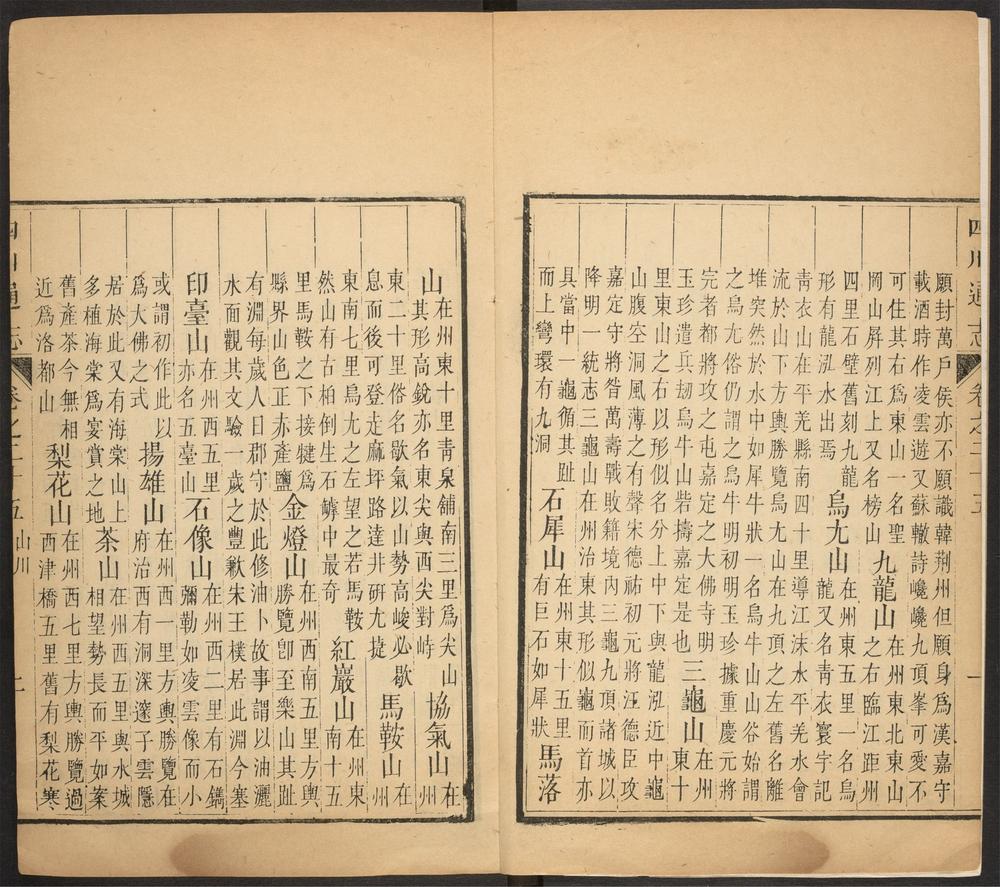 四川通志 卷之二十五 一
願封萬戶侯亦不願識韓荆州但願身爲漢嘉守
載酒時作凌雲遊又蘇轍詩巉巉九頂峯可愛不
可住其右爲東山一名聖
岡山屛列江上又名榜山
九龍山
在州東東北東山
之右臨江距州
四里石壁舊刻九龍
形有龍泓水出焉
烏尤山
在州東五里一名烏
龍又名靑衣寰宇記
靑衣山在平羌縣南四十里導江沫水平羌水會
流於山下方輿勝覽烏尤山在九頂之左舊名離
堆突然於水中如犀牛狀一名烏牛山山谷始謂
之烏尤俗仍謂之烏牛明初明玉珍據重慶元將
完者都將攻之屯嘉定之大佛寺明
玉珍遣兵刼烏牛山砦擣嘉定是也
三龜山
在州
東十
里東山之右以形似名分上中下與龍泓近中龜
山腹空洞風薄之有聲宋德祐初元將汪德臣攻
嘉定守將昝萬壽戰敗籍境內三龜九頂諸城以
降明一統志三龜山在州治東其形似龜而首亦
具當中一龜循其趾
而上彎環有九洞
石犀山
在州東十五里
有巨石如犀狀
馬落
山
在州東十里靑泉舖南三里爲尖山
其形高銳亦名東尖與西尖對峙
協氣山
在
州
東二十里俗名歇氣以山勢高峻必歇
息而後可登走麻坪路達井研尤捷
馬鞍山
在
州
東南七里烏尤之左望之若馬鞍
然山有古柏倒生石罅中最奇
紅巖山
在州東
南十五
里馬鞍之下接犍爲
縣界山色正赤產鹽
金燈山
在州西南五里方輿
勝覽卽至樂山其趾
有淵每歲人日郡守於此修油卜故事謂以油灑
水面觀其文驗一歲之豐歉朱王樸居此淵今塞
印臺山
在州西五里
亦名五臺山
石像山
在州西二里有石鐫
彌勒如凌雲像而小
或謂初作此以
爲大佛之式
揚雄山
在州西一里方輿勝覽在
府治西有洞深邃子雲隱
居於此又有海棠山上
多植海棠爲宴賞之地
茶山
在州西五里與水城
相望勢長而平如案
舊產茶今無相
近爲洛都山
梨花山
在州西七里方輿勝覽過
西津橋五里舊有梨花寒
四川通志 卷之二十五 山川